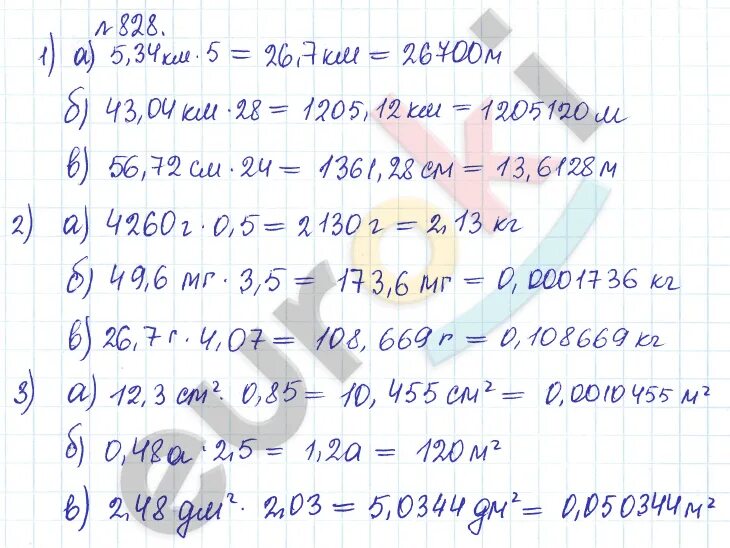 №828.
1) а) 5,34км·5 = 26,7км = 26700м
б) 43,04 км·28 = 1205,12 км = 1205120 м
в) 56,72 см·24 = 1361,28 см = 13,6128 м
2) а) 4260г·0,5 = 2130г = 2,13 кг
б) 49,6 мг·3,5 = 173,6 мг = 0,0001736 кг
в) 26,7г·4,07 = 108,669г = 0,108669 кг
3) а) 12,3 см²·0,85 = 10,455 см² = 0,0010455 м²
б) 0,48а·2,5 = 1,2а = 120 м²
в) 2,48 дм²·2,03 = 5,0344 дм² = 0,050344 м²
euroki